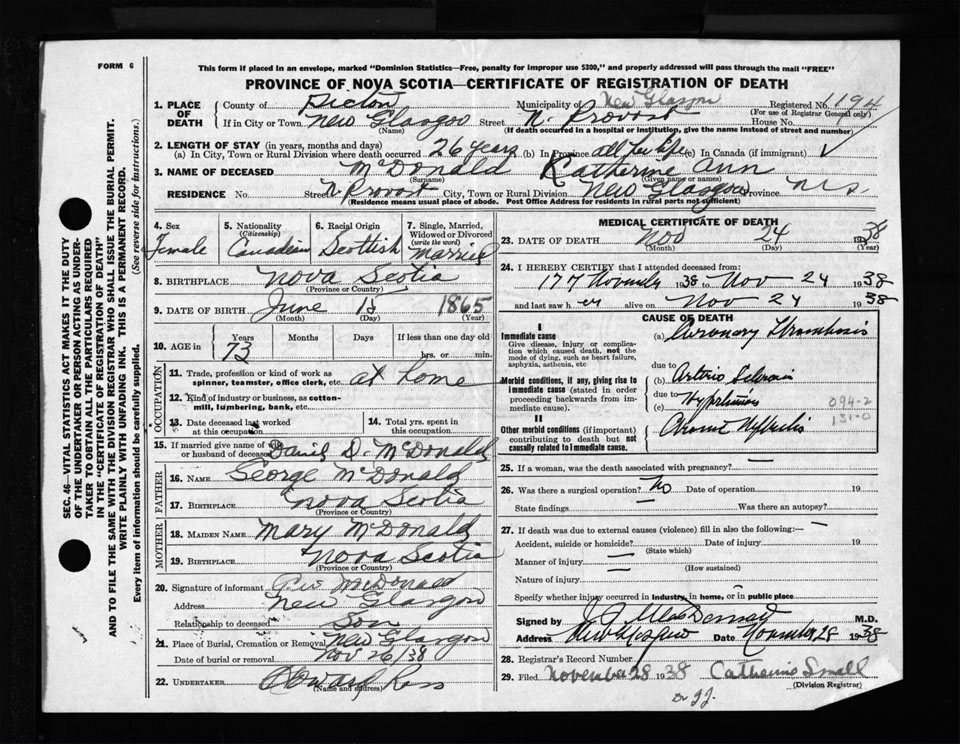 FORM 6
This form if placed in an envelope, marked "Dominion Statistics—Free, penalty for improper use $300," and properly addressed will pass through the mail "FREE"
PROVINCE OF NOVA SCOTIA—CERTIFICATE OF REGISTRATION OF DEATH
1. PLACE OF DEATH
County of Pictou Municipality of New Glasgow Registered No. 1194
(For use of Registrar General only)
If in City or Town New Glasgow Street N. Provost House No.
(Name) (If death occurred in a hospital or institution, give the name instead of street and number)
2. LENGTH OF STAY (in years, months and days)
(a) In City, Town or Rural Division where death occurred 26 years (b) In Province all her life (c) In Canada (if immigrant)
3. NAME OF DECEASED McDonald Katherine Ann
(Surname) (Given name or names)
RESIDENCE No. Street N Provost City, Town or Rural Division New Glasgow Province N.S.
(Residence means usual place of abode. Post Office Address for residents in rural parts not sufficient)
4. Sex
Female
5. Nationality
(Citizenship)
Canadian
6. Racial Origin
Scottish
7. Single, Married, Widowed or Divorced
(write the word)
Married
8. BIRTHPLACE Nova Scotia
(Province or Country)
9. DATE OF BIRTH June 15 1865
(Month) (Day) (Year)
10. AGE in Years Months Days If less than one day
73 hrs. or min.
OCCUPATION
11. Trade, profession or kind of work as spinner, teamster, office clerk, etc. at home
12. Kind of industry or business, as cotton-mill, lumbering, bank, etc.
13. Date deceased last worked at this occupation
14. Total yrs. spent in this occupation
15. If married give name of wife or husband of deceased Daniel D. McDonald
FATHER
16. NAME George McDonald
17. BIRTHPLACE Nova Scotia
(Province or Country)
MOTHER
18. MAIDEN NAME Mary McDonald
19. BIRTHPLACE Nova Scotia
(Province or Country)
20. Signature of informant McDonald
Address New Glasgow
Relationship to deceased Son
21. Place of Burial, Cremation or Removal New Glasgow
Date of burial or removal Nov 26/38
22. UNDERTAKER Ross
(Name and address)
MEDICAL CERTIFICATE OF DEATH
23. DATE OF DEATH Nov 24 1938
(Month) (Day) (Year)
24. I HEREBY CERTIFY that I attended deceased from:
17 November 1938 to Nov 24 1938
and last saw her alive on Nov 24 1938
CAUSE OF DEATH
I
Immediate cause
Give disease, injury or complication which caused death, not the mode of dying, such as heart failure, asphyxia, asthenia, etc.
(a) Coronary Thrombosis
due to
Morbid conditions, if any, giving rise to immediate cause (stated in order proceeding backwards from immediate cause).
(b) Arterio Sclerosis
due to
(c) Hypertension
094-2
131-0
II
Other morbid conditions (if important) contributing to death but not causally related to immediate cause.
Chronic Nephritis
25. If a woman, was the death associated with pregnancy? —
26. Was there a surgical operation? No Date of operation 19
State findings — Was there an autopsy?
27. If death was due to external causes (violence) fill in also the following:—
Accident, suicide or homicide? Date of injury 19
(State which)
Manner of injury —
(How sustained)
Nature of injury —
Specify whether injury occurred in industry, in home, or in public place
Signed by M.D.
Address New Glasgow Date November 28 1938
28. Registrar's Record Number
29. Filed November 28 1938 Catherine Small
(Division Registrar)
SEC. 46—VITAL STATISTICS ACT MAKES IT THE DUTY
OF THE UNDERTAKER OR PERSON ACTING AS UNDER-
TAKER TO OBTAIN ALL THE PARTICULARS REQUIRED
IN THE "CERTIFICATE OF REGISTRATION OF DEATH"
AND TO FILE THE SAME WITH THE DIVISION REGISTRAR WHO SHALL ISSUE THE BURIAL PERMIT.
WRITE PLAINLY WITH UNFADING INK. THIS IS A PERMANENT RECORD.
Every item of information should be carefully supplied. (See reverse side for instructions.)